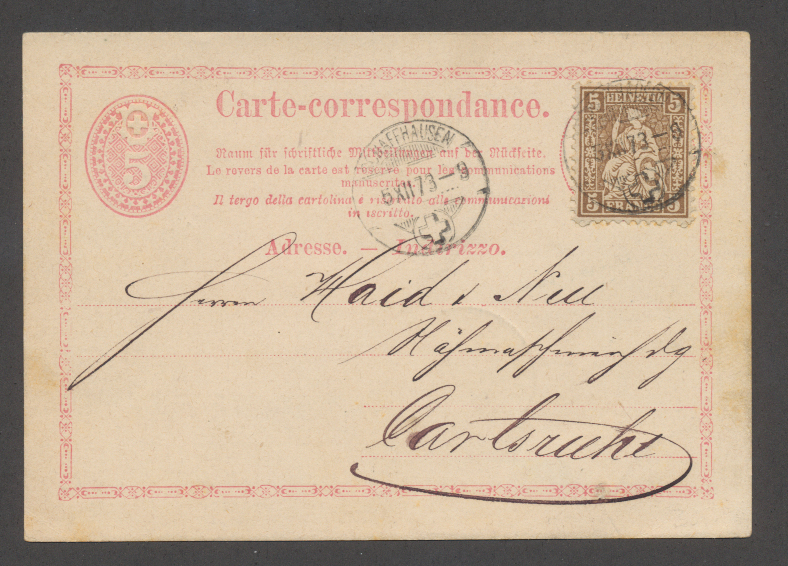 Carte-correspondance.
5
Raum für schriftliche Mittheilungen auf der Rückseite.
Le revers de la carte est réservé pour les communications
manuscrites.
Il tergo della cartolina è riservato alle communicazioni
in iscritto.
Adresse. — Indirizzo.
SCHAFFHAUSEN
6 XII 73 - 9
5 HELVETIA 5
5 FRANCO 5
XII 73 - 9
Herren Haid & Neu
Nähmaschinen
Carlsruhe